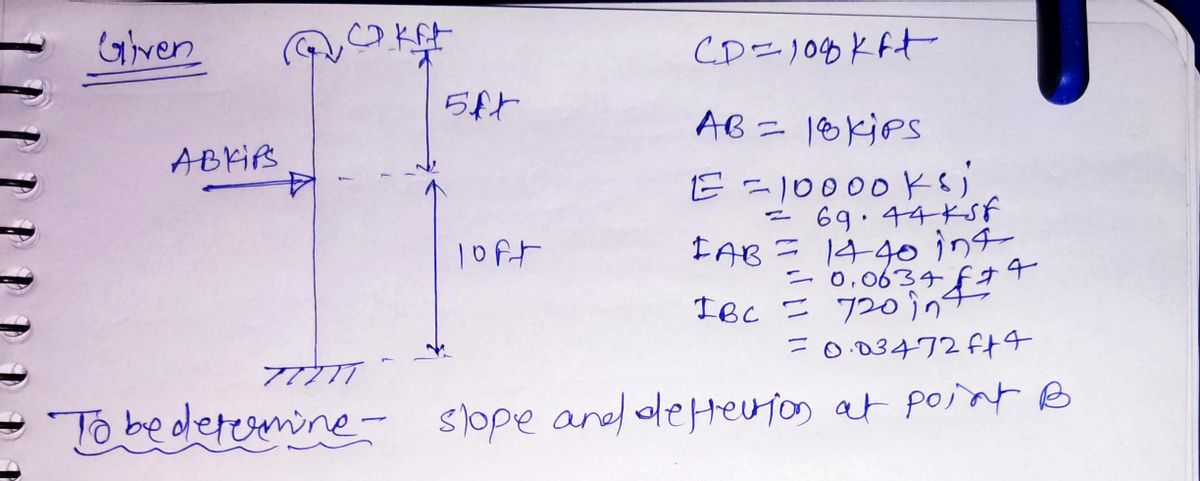 Given
CD kft
5ft
ABKiPs
10ft
CD = 108 kft
AB = 18 kips
E = 10000 ksi
= 69.44 ksf
IAB = 1440 in4
= 0.0634 ft4
IBC = 720 in4
= 0.03472 ft4
To be determine - slope and deflection at point B